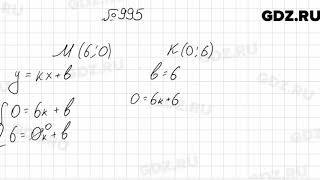 №995
GDZ.RU
M(6;0) K(0;6)
y = kx + b b = 6
0 = 6k + b 0 = 6k + 6
6 = 0k + b
GDZ.RU